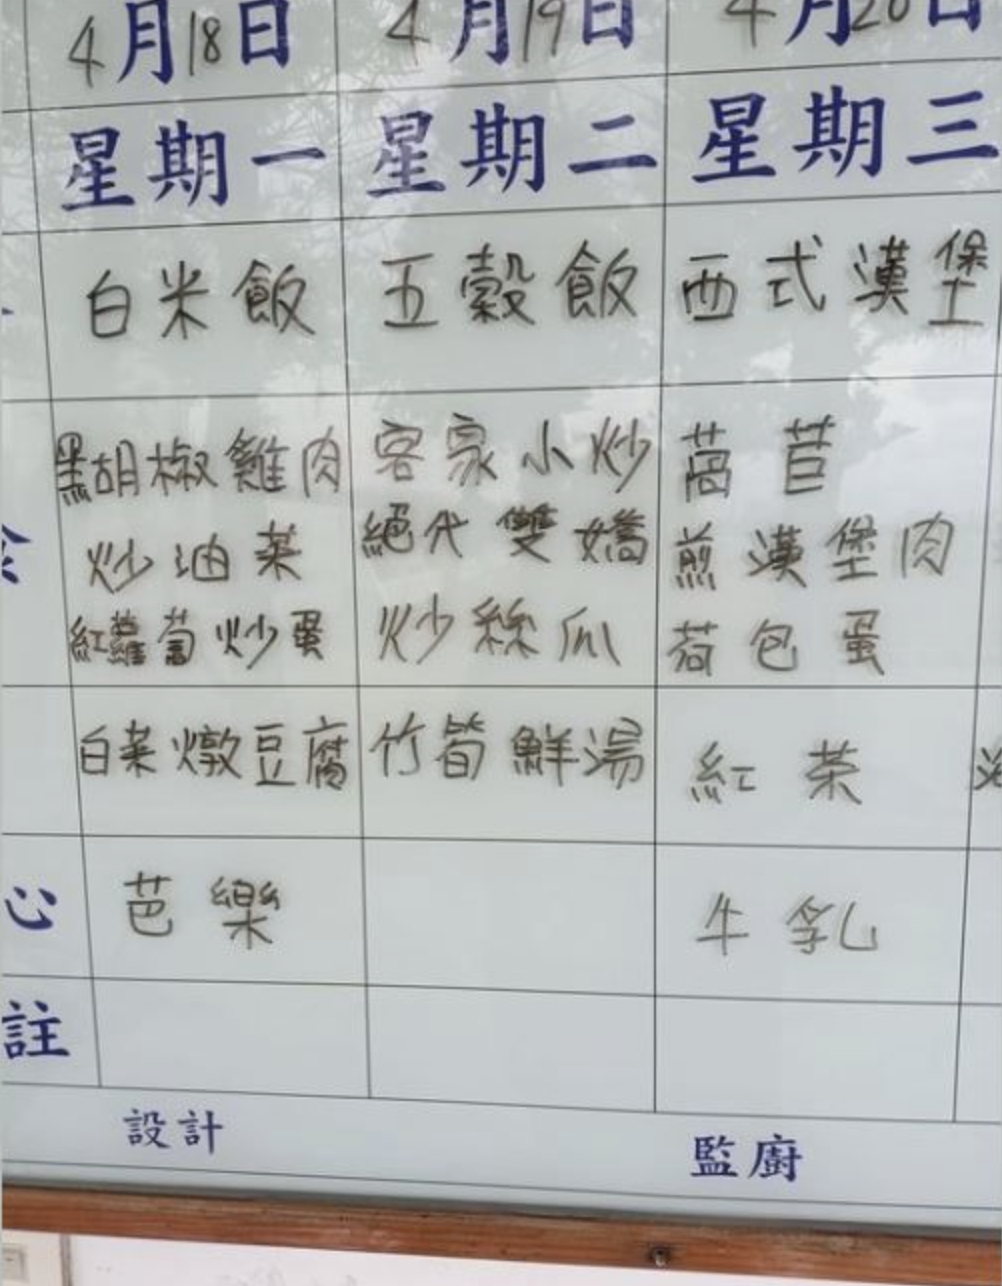 4月18日 4月19日 4月20日
星期一 星期二 星期三
白米飯 五穀飯 西式漢堡
黑胡椒雞肉 客家小炒 萵苣
炒油菜 絕代雙嬌 煎漢堡肉
紅蘿蔔炒蛋 炒絲瓜 荷包蛋
白菜燉豆腐 竹筍鮮湯 紅茶
心 芭樂 牛乳
註
設計 監廚